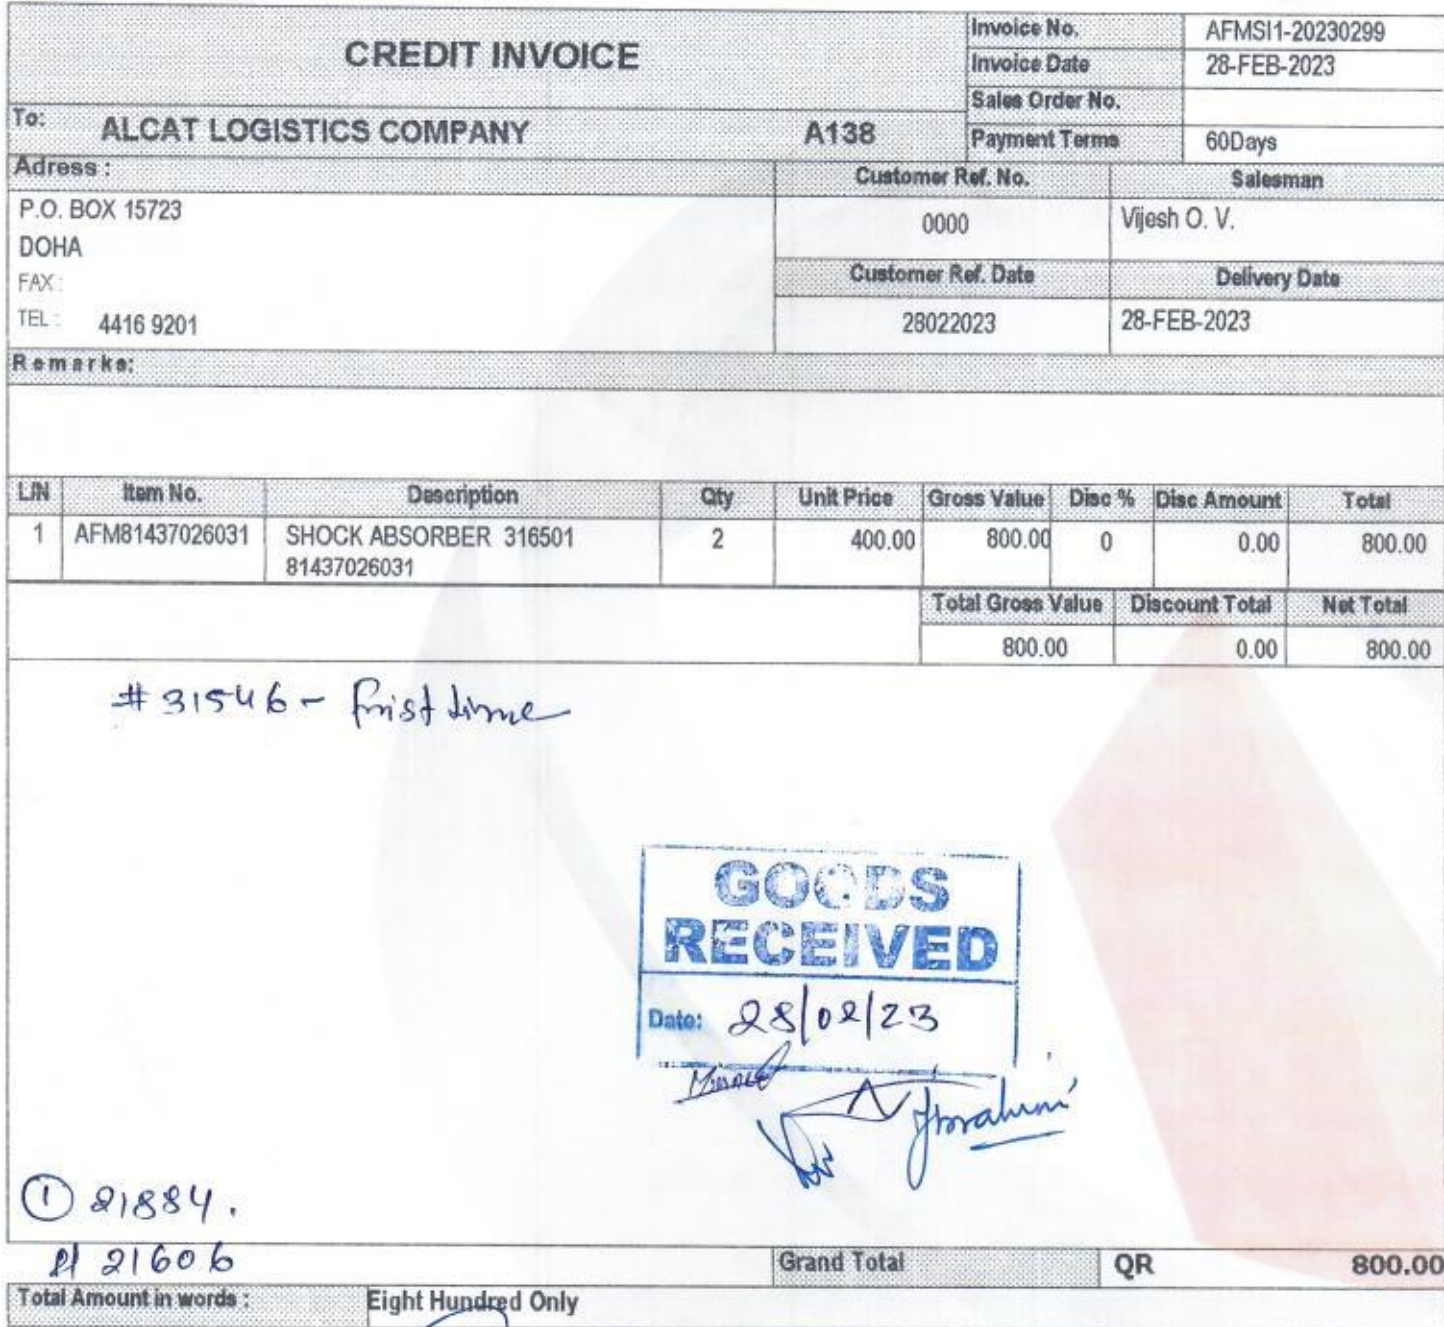 CREDIT INVOICE
Invoice No. AFMSI1-20230299
Invoice Date 28-FEB-2023
Sales Order No.
To: ALCAT LOGISTICS COMPANY A138
Payment Terms 60Days
Adress :
Customer Ref. No. Salesman
P.O. BOX 15723
0000 Vijesh O. V.
DOHA
FAX :
Customer Ref. Date Delivery Date
TEL : 4416 9201
28022023 28-FEB-2023
Remarks:
L/N Item No. Description Qty Unit Price Gross Value Disc % Disc Amount Total
1 AFM81437026031 SHOCK ABSORBER 316501 2 400.00 800.00 0 0.00 800.00
81437026031
Total Gross Value Discount Total Net Total
800.00 0.00 800.00
#31546 - frist time
GOODS
RECEIVED
Date: 28/02/23
Ibrahim
1 21884.
21606
Grand Total QR 800.00
Total Amount in words : Eight Hundred Only